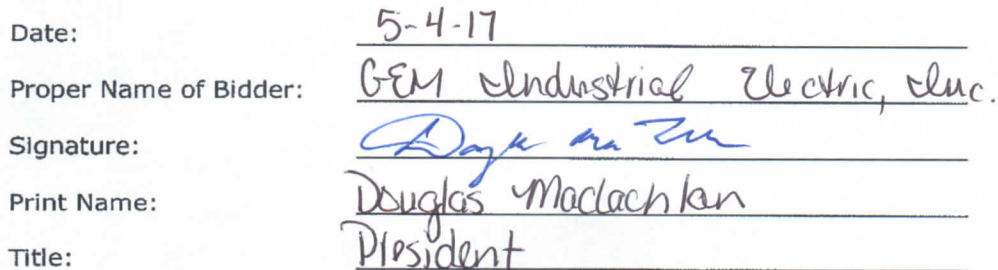 Date: 5-4-17
Proper Name of Bidder: GEM Industrial Electric, Inc.
Signature:
Print Name: Douglas Maclachlan
Title: President